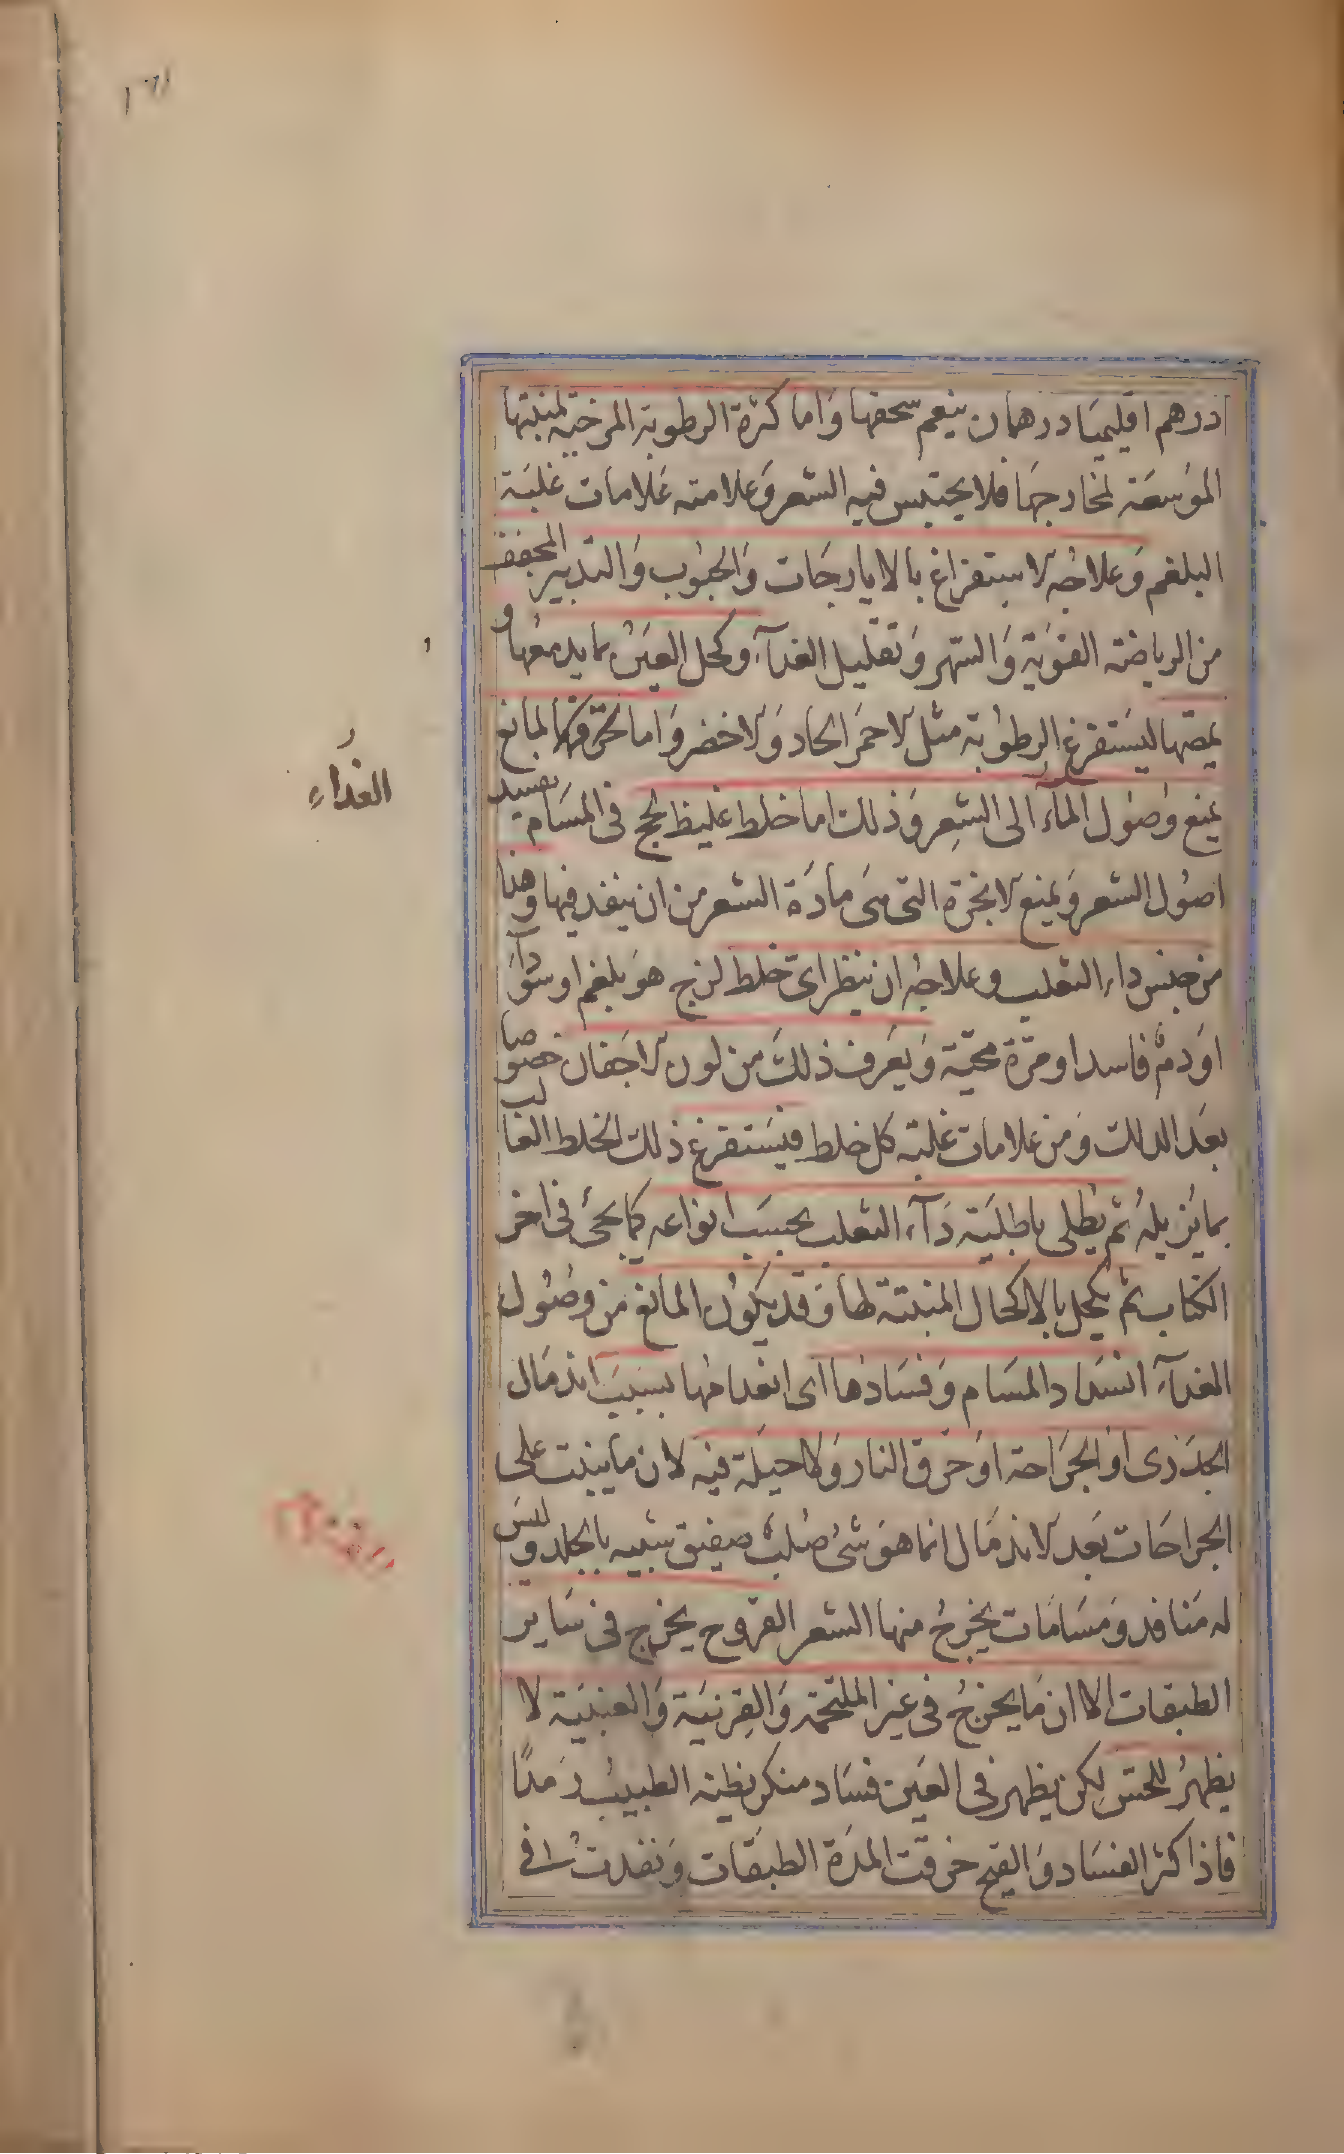 درهم اقليميا درهمان ينعم سحقها وَاما كثرة الرطوبة المرخية لمنبتها
الموَسعَة لمخارجهَا فلا يحتبس فيه الشعر وَعلامته عَلامات غلبَة
البلغم وَعلاجُه الاستفراغ بالايارجَات وَالحبُوب وَالتدبير المجفف
من الرياضة القوَية وَالسّهر وَتقليل الغدآء وكحل العيَن بما يدمعُها و
يمصّها ليسَتفرغ الرطوُبة مثل الاحمَر الحاد وَالاخضر وَاما لمانع
يمنع وصُول المآء الى الشعِر وَذلك اما خلط غليظ لحج فى المسَام يفسد
اصُول الشعر وَيمنع الابخرة التى هىَ مادَة الشعر من ان ينفد فيها وهذا
من جنس داء الثعلب وعلاجُه ان ينظر اىّ خلط لزج هوَ بلغم او سودآء
اوَ دمٌ فاسد او مرّة محيّة وَيعَرف ذلكَ من لون الاجَفان خصوصا
بعَد الدلك وَمن علامات غلبة كل خلط فيسَتفرغ ذلك الخلط الغالب
بما يُزيلهُ ثم يُطلى باطليَة دَآء الثعلب بحسَب انواعه كما يجئ فى اخر
الكتاب ثم يكحل بالاكحال المنبتة لها وَقد يكوُن المانع من وصُول
الغدآءِ انسدَاد المسَام وَفسَادها اى انعدامُها بسَبَب اندمَال
الجدَرى اوَ الجرَاحة اوَ حَرق النار وَلا حيلَة فيه لان ما ينبت على
الجراحَات بَعد الاندمَال انما هوَ شئ صُلبٌ صفيق شبيه بالجلد وليسَ
له مَنافد وَمسَامَات يخرجُ منها الشعر القروح يخرج فى سَاير
الطبقات الا ان مَا يخرجُ فى غير الملتحمة وَالقِرنيَة وَالعنبيَة لا
يظهرُ للحسّ لكِن يظهر فى العيَن فسَاد منكر يظنه الطبيبُ رمَدًا
فاذا كثر الفسَاد وَالقيح خرقت المدَة الطبَقات وَنفدت فى
الغذاءِ